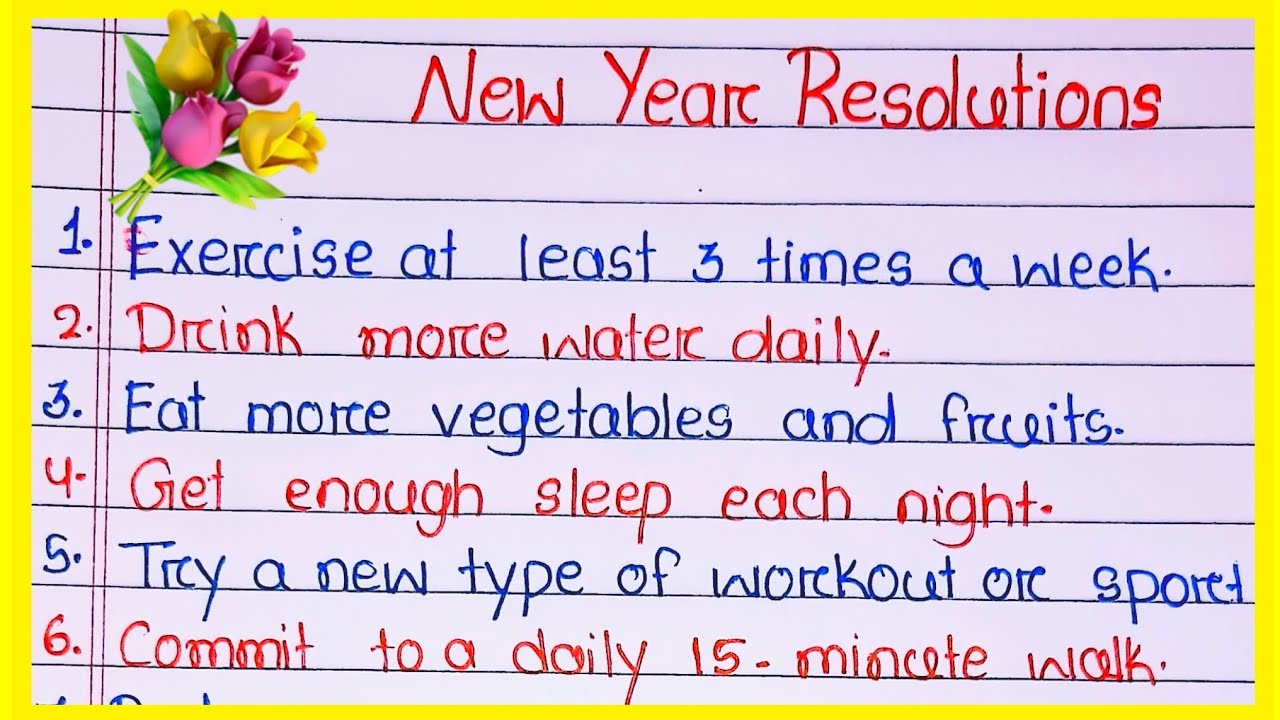 New Year Resolutions
1. Exercise at least 3 times a week.
2. Drink more water daily.
3. Eat more vegetables and fruits.
4. Get enough sleep each night.
5. Try a new type of workout or sport
6. Commit to a daily 15-minute walk.